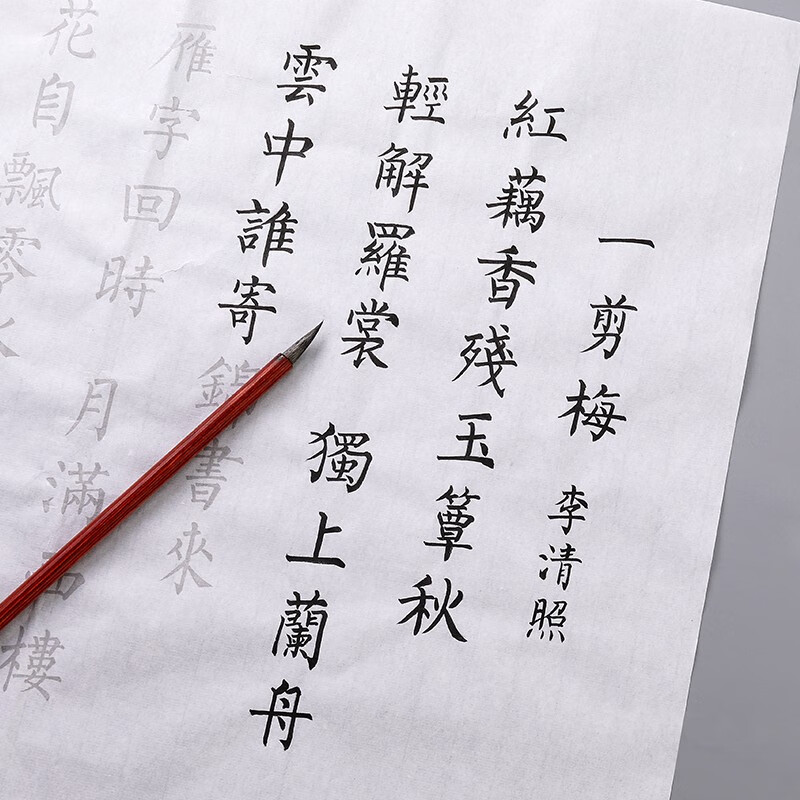 一剪梅 李清照
紅藕香殘玉簟秋
輕解羅裳 獨上蘭舟
雲中誰寄 錦書來
雁字回時 月滿西樓
花自飄零水